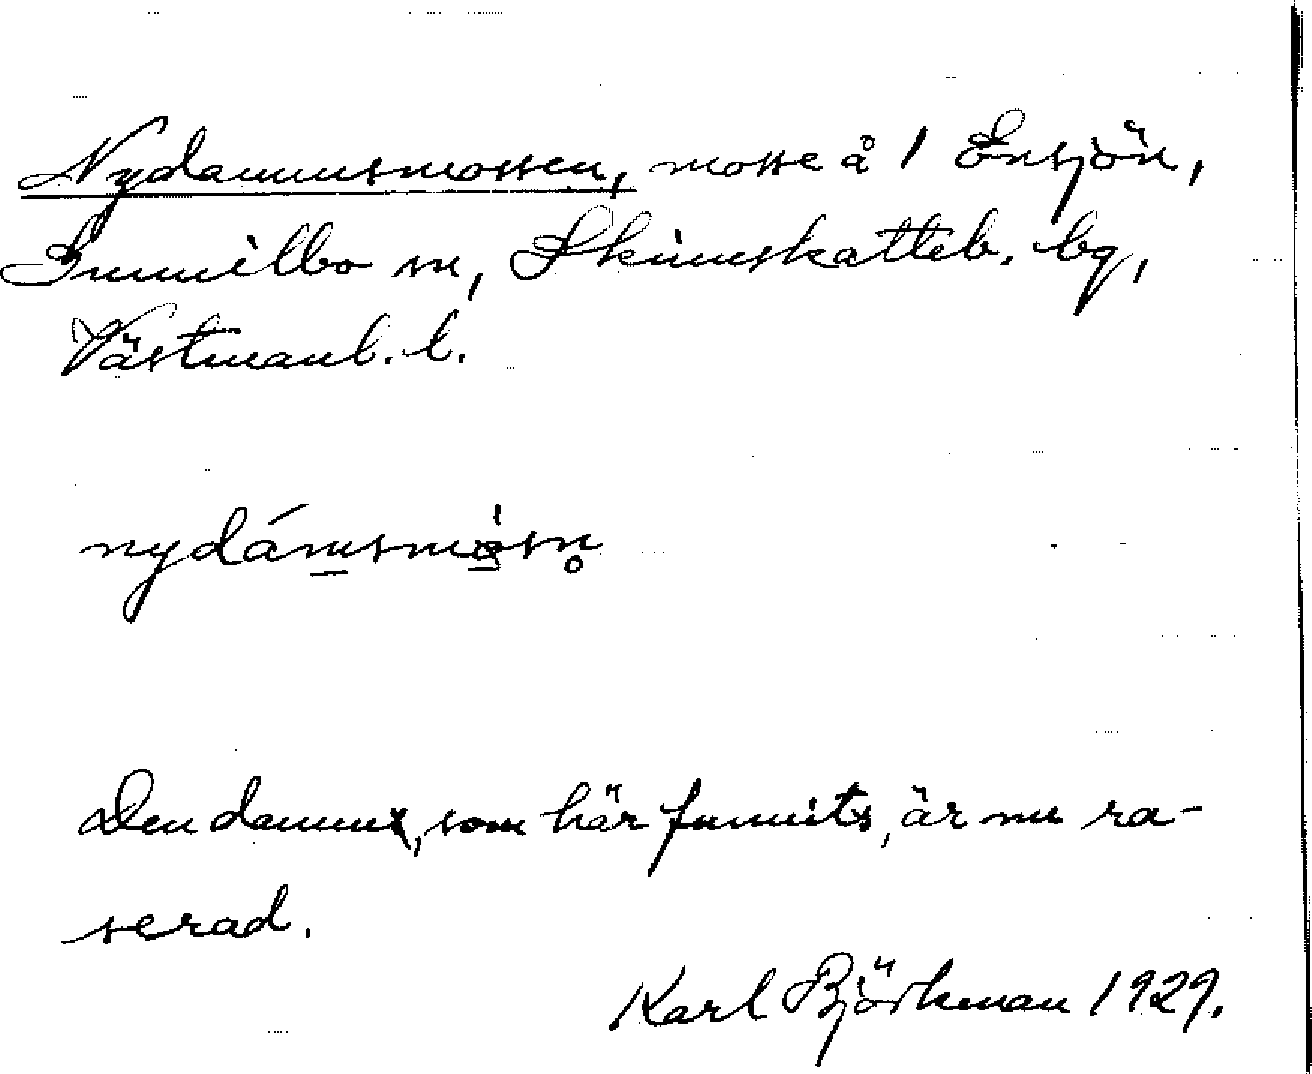 Nydammsmossen, mosse å 1 Ensjön,
Gunnilbo sn, Skinnskatteb. bg,
Västmanl. l.
nydámsmåsn̥
Den damm, som här funnits, är nu ra-
serad.
Karl Björkman 1929.